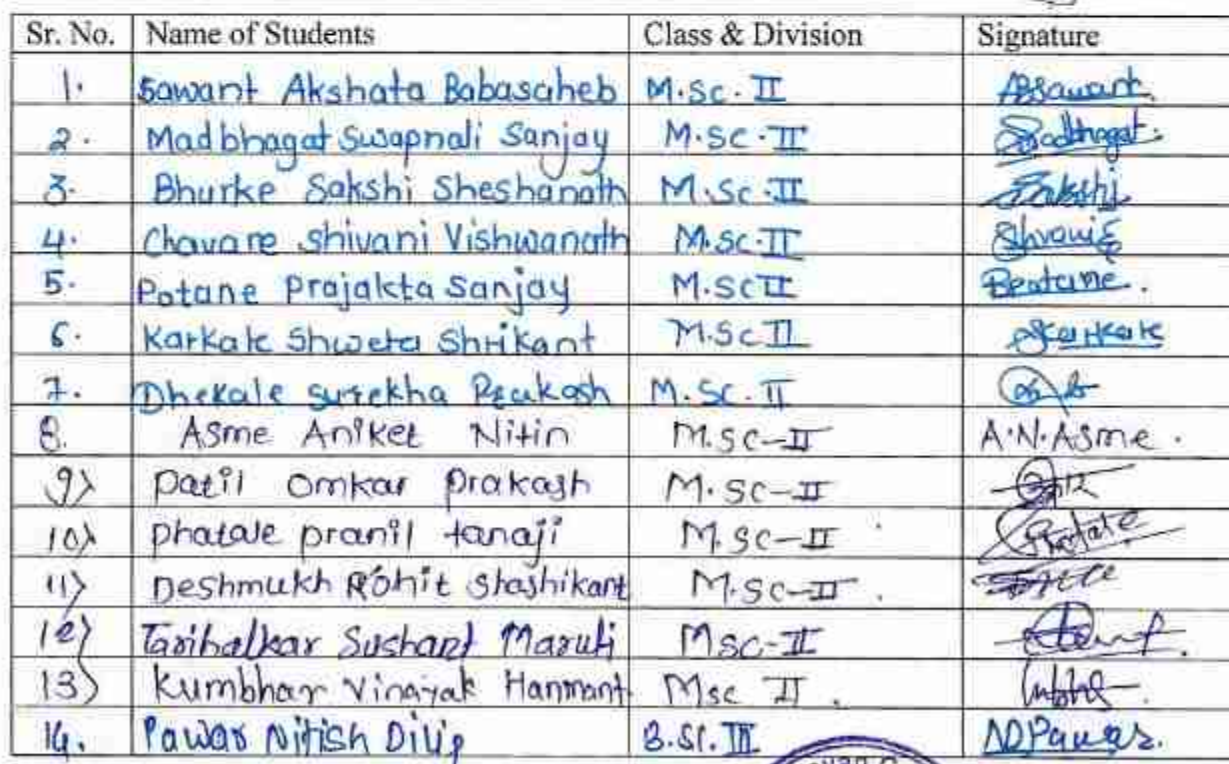 Sr. No. Name of Students Class & Division Signature
1. Sawant Akshata Babasaheb M.Sc. II ABSawant.
2. Madbhagat Swapnali Sanjay M.Sc.II Sadbhagat.
3. Bhurke Sakshi Sheshanath M.Sc.II Sakshi
4. Chavare Shivani Vishwanath M.Sc.II
5. Potane Prajakta Sanjay M.Sc II
6. Karkale Shweta Shrikant M.Sc II
7. Dhekale surekha Prakash M.Sc.II
8. Asme Aniket Nitin M.Sc-II A.N.Asme.
9) Patil Omkar Prakash M.Sc-II
10) phatale pranil tanaji M.Sc-II
11) Deshmukh Rohit Shashikant M.Sc-II.
12) Tarihalkar Sushant Maruti Msc-II
13) Kumbhar Vinayak Hanmant Msc II.
14. Pawar Nitish Dilip B.Sc.III NDPawar.